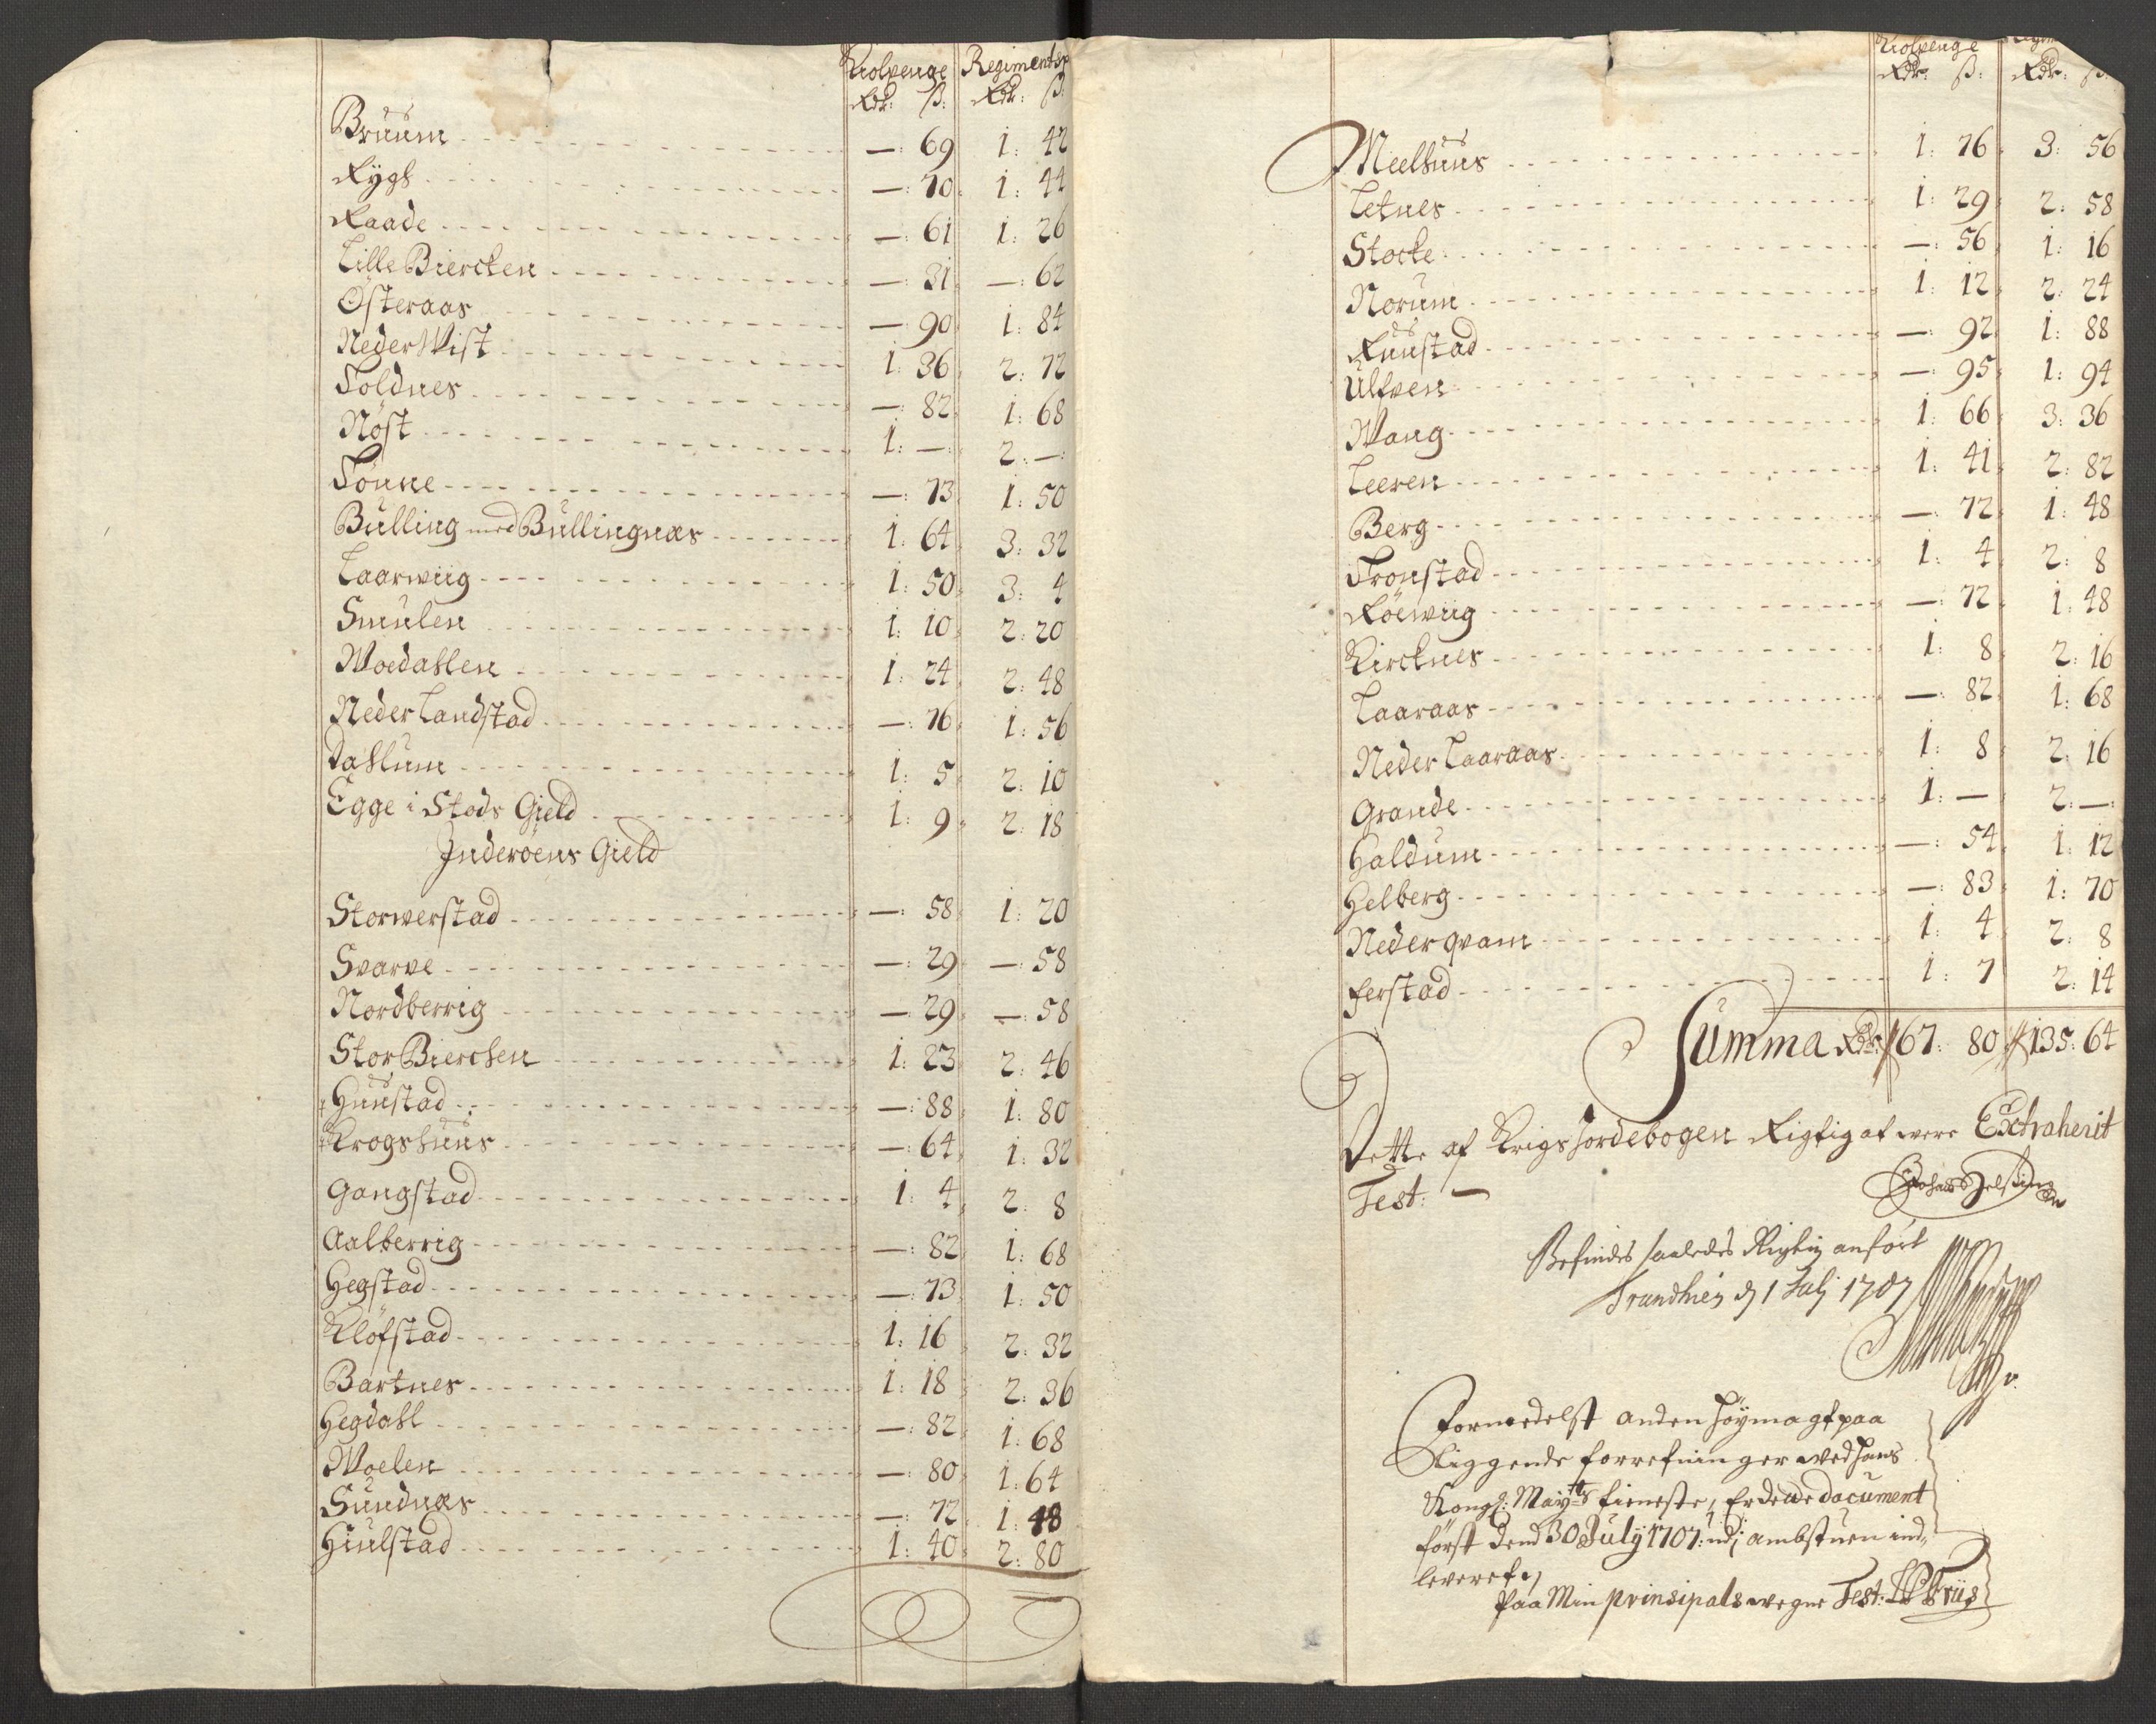 Kiolpenge Regimentsp
Rdr: ß: Rdr: ß:
Bruum —: 69 1: 42
Rygh —: 70 1: 44
Raade —: 61 1: 26
Lille Biercken —: 31 —: 62
Østeraas —: 90 1: 84
Neder Wist 1: 36 2: 72
Foldnes —: 82 1: 68
Nøst 1: —: 2: —:
Tønne —: 73 1: 50
Bulling med Bullingnæs 1: 64 3: 32
Laarwiig 1: 50 3: 4
Smulen 1: 10 2: 20
Woedahlen 1: 24 2: 48
Neder Landstad —: 76 1: 56
Dahlum 1: 5 2: 10
Egge i Stods Gield 1: 9 2: 18
Inderøens Gield
Storwerstad —: 58 1: 20
Svarve —: 29 —: 58
Nordberrig —: 29 —: 58
Stor Bierchen 1: 23 2: 46
Huustad —: 88 1: 80
Krogshuus —: 64 1: 32
Gangstad 1: 4 2: 8
Aalberrig —: 82 1: 68
Hegstad —: 73 1: 50
Kløfstad 1: 16 2: 32
Bartnes 1: 18 2: 36
Hegdahl —: 82 1: 68
Woelen —: 80 1: 64
Sundnæs —: 72 1: 48
Hiulstad 1: 40 2: 80
Kiolpenge
Rdr: ß: Rdr: ß:
Meelhuus 1: 76 3: 56
Letnes 1: 29 2: 58
Stocke —: 56 1: 16
Norum 1: 12 2: 24
Ruustad —: 92 1: 88
Ulfven —: 95 1: 94
Wang 1: 66 3: 36
Leeren 1: 41 2: 82
Berg —: 72 1: 48
Tronstad 1: 4 2: 8
Røewiig —: 72 1: 48
Kircknes 1: 8 2: 16
Laaraas —: 82 1: 68
Neder Laaraas 1: 8 2: 16
Grande 1: — 2: —:
Haldum —: 54 1: 12
Helberg —: 83 1: 70
Neder qvam 1: 4 2: 8
Ferstad 1: 7 2: 14
Summa Rdr: 67: 80 135: 64
Dette af Krigs Jordebogen Rigtig at were Extraherit
Test: —
Befindes saaledes Rigtig anført
Trundhiem d 1 Julj 1707
Formedelst anden høymagtpaa
Liggende forretninger ved hans
Kongl: Mayts tieneste, Er dette document
først dend 30 July 1707: udj ambstuen ind-
leveret,
paa Min prinsipals wegne Test: Friis